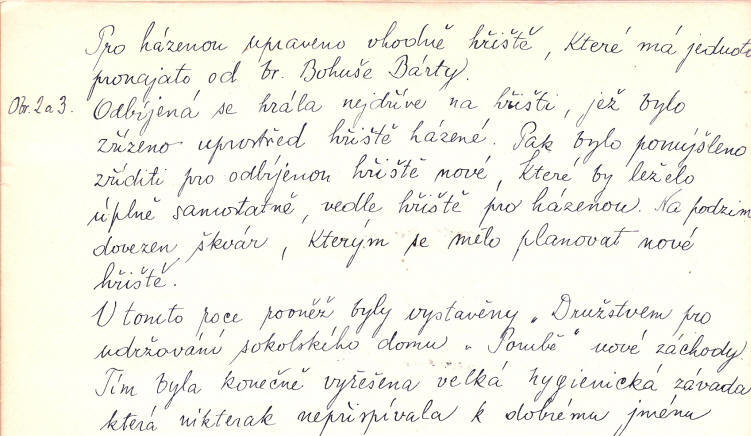 Pro házenou upraveno vhodně hřiště, které má jednota
pronajato od br. Bohuše Bárty.
Obr. 2 a 3. Odbíjená se hrála nejdříve na hřišti, jež bylo
zřízeno uprostřed hřiště házené. Pak bylo pomýšleno
zříditi pro odbíjenou hřiště nové, které by leželo
úplně samostatně, vedle hřiště pro házenou. Na podzim
dovezen škvár, kterým se mělo planovat nové
hřiště.
V tomto roce rovněž byly vystavěny „Družstvem pro
udržování sokolského domu v Porubě" nové záchody.
Tím byla konečně vyřešena velká hygienická závada
která nikterak nepřispívala k dobrému jménu